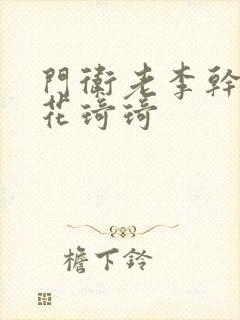 門衛老李幹
花琦琦
檐下鈴